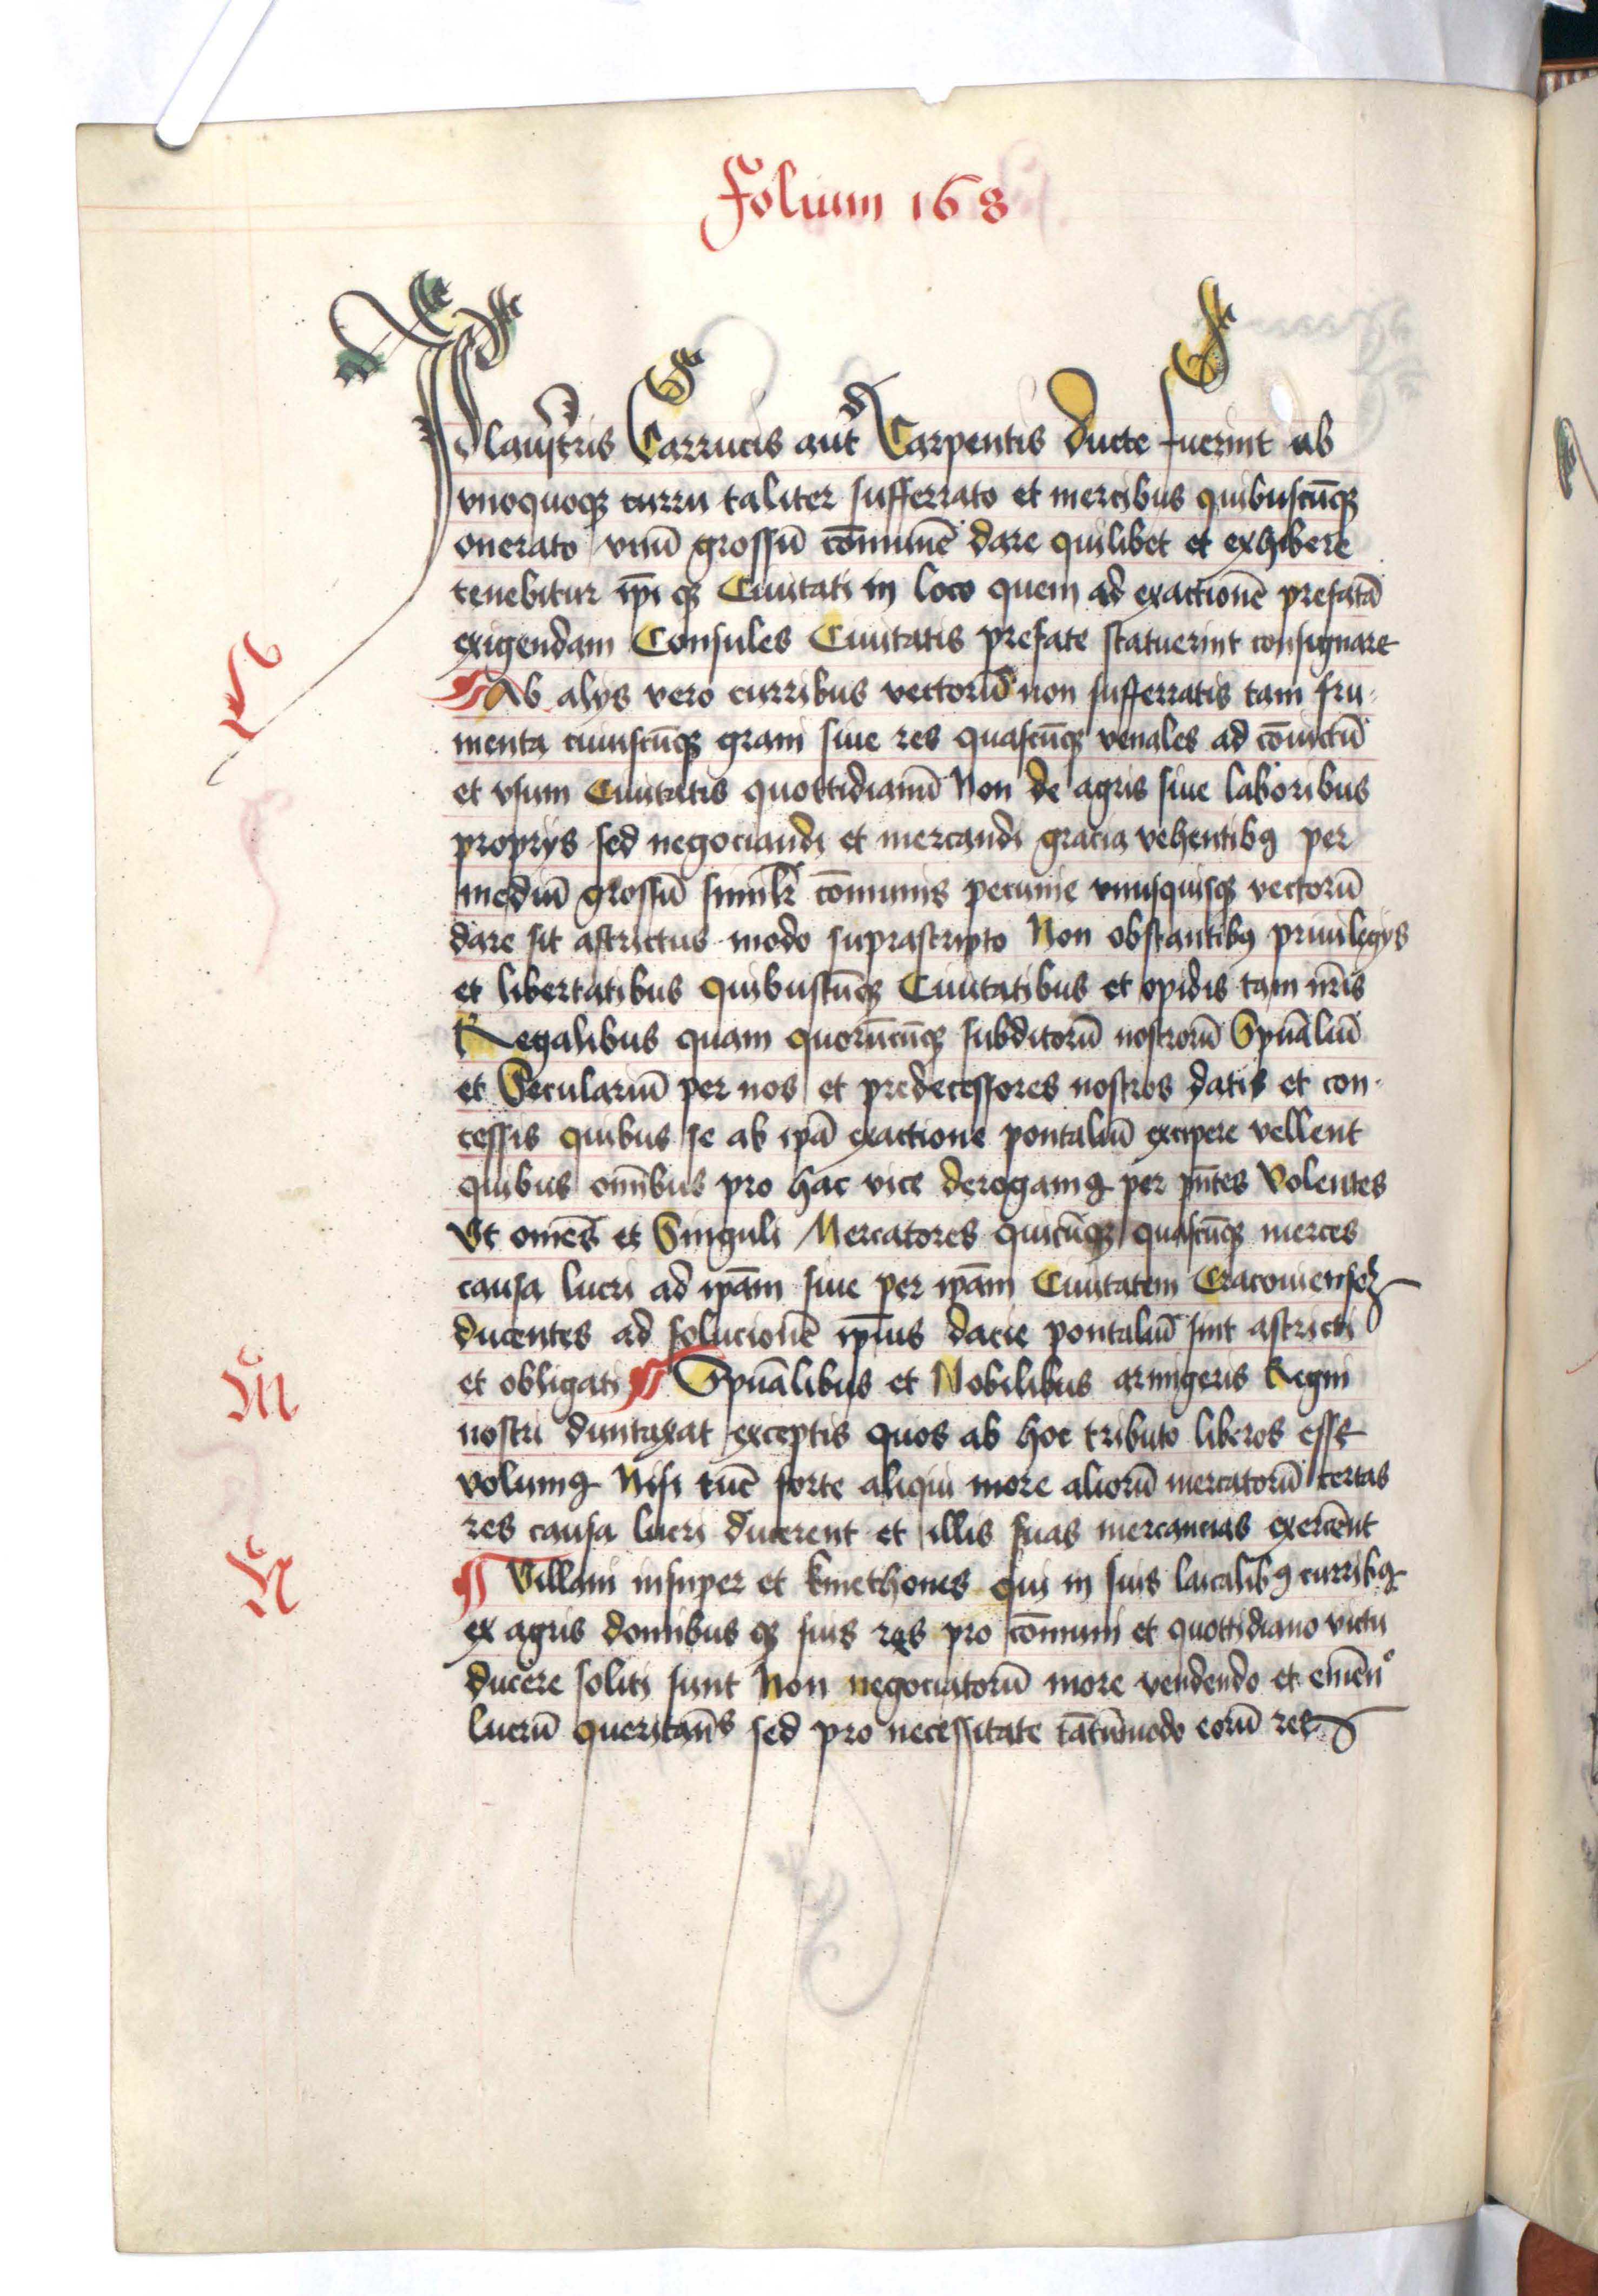 Folium 168
Plaustris Carrucis aut Carpentis ducte fuerint ab
vnoquoqꝫ curru taliter sufferrato et mercibus quibuscūqꝫ
onerato vnū grossū cōmunē dare quilibet et exhibere
tenebitur ip̄i qꝫ Ciuitati in loco quem ad exactionē prefatā
exigendam Consules Ciuitatis prefate statuerint consignare
L
¶ Ab alys vero curribus vectorū non sufferratis tam fru-
menta cuiuscūqꝫ grani siue res quascūqꝫ venales ad cōuictū
et vsum Ciuitatis quottidianū Non de agris siue laboribus
proprys sed negociandi et mercandi gracia vehentibꝯ per
mediū grossū simil̄r cōmunis pecunie vnusquisqꝫ vectorū
dare sit astrictus modo suprascripto Non obstantibꝯ priuilegys
et libertatibus quibuscūqꝫ Ciuitatibus et opidis tam nr̄is
Regalibus quam quorūcūqꝫ subditorū nostrorū Spūaliū
et Seculariū per nos et predecessores nostros datis et con-
cessis quibus se ab ip̄a exactione pontaliū excipere vellent
quibus om̄ibus pro hac vice derogamꝯ per pn̄tes Volentes
Vt om̄es et Singuli Mercatores quicūqꝫ quascūqꝫ merces
causa lucri ad ip̄am siue per ip̄am Ciuitatem Cracouiensem
ducentes ad solucionē ip̄ius dacie pontaliū sint astricti
M
et obligati ¶ Spūalibus et Nobilibus armigeris Regni
nostri duntaxat exceptis quos ab hoc tributo liberos esse
volumꝯ Nisi tūc forte aliqui more aliorū mercatorū certas
res causa lucri ducerent et illis suas mercancias exercēnt
N
¶ Villani insuper et kmethones qui in suis laicalibꝯ curribꝯ
ex agris domibus qꝫ suis res pro cōmuni et quottidiano victu
ducere soliti sunt Non negociatorū more vendendo et emēnᵒ
lucrū queritan̄s sed pro necessitate tātūmodo eorū res